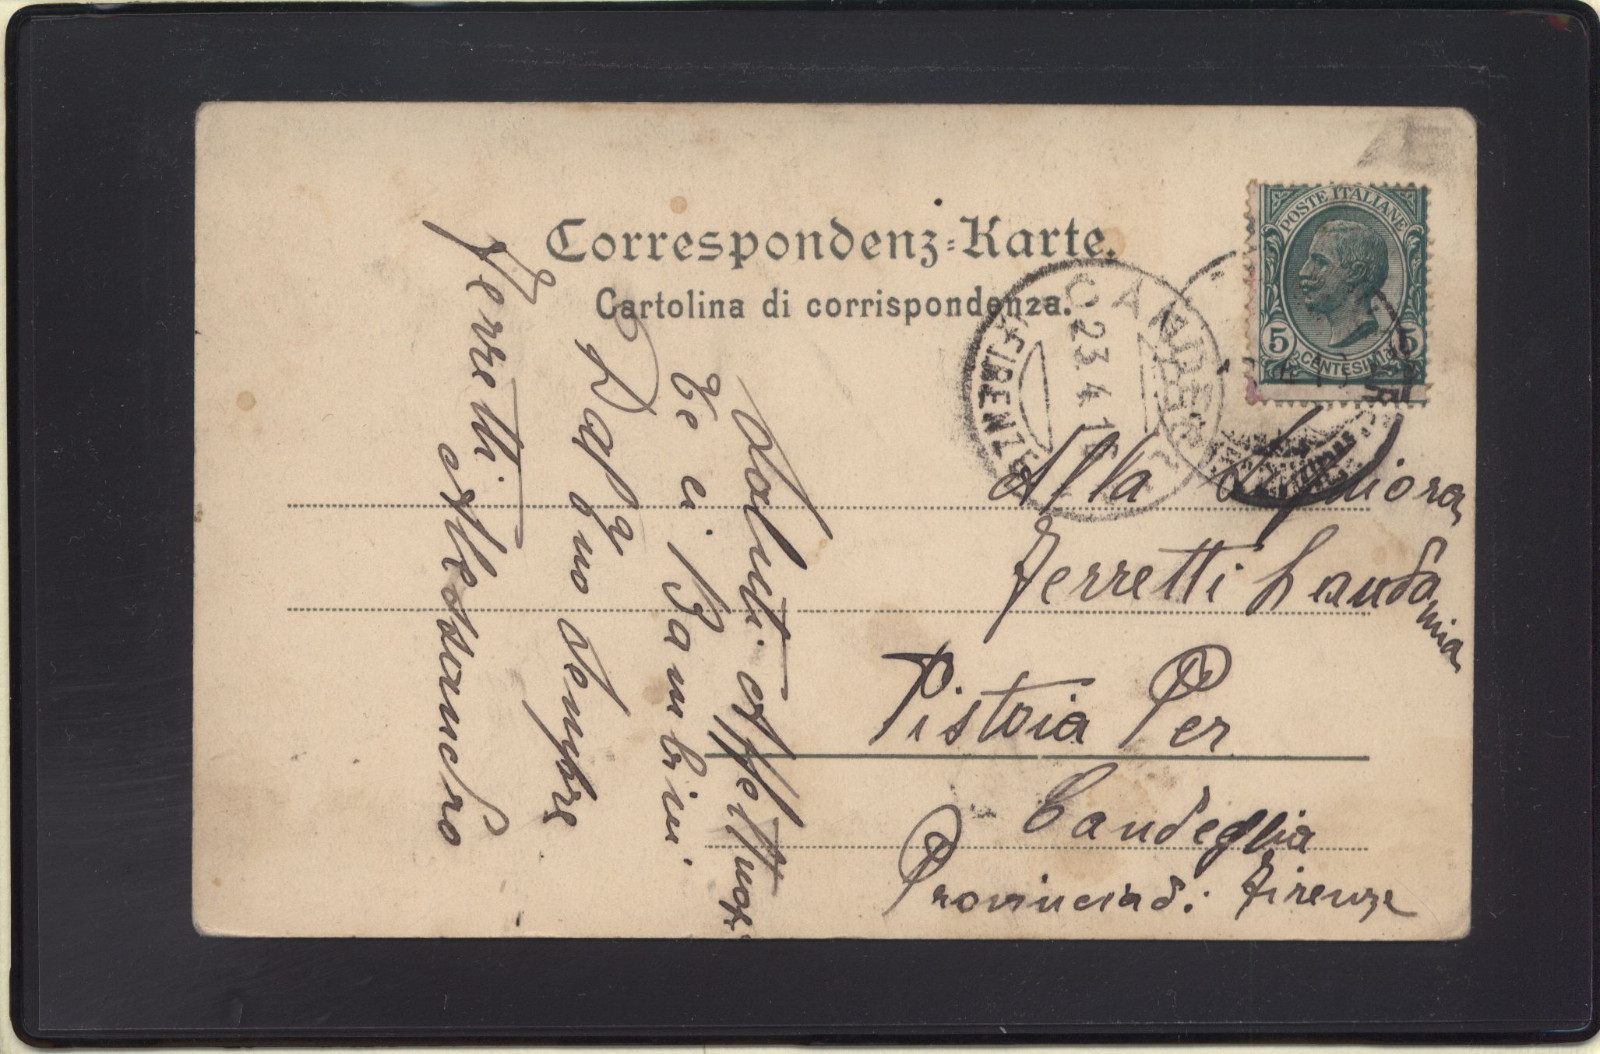 Correspondenz-Karte.
Cartolina di corrispondenza.
POSTE ITALIANE
5 CENTESIMI 5
23.4.1
FIRENZE
Alla Signiora
Ferretti Lauda
mia
Pistoia Per
Candeglia
Provincia di Firenze
Saluti Affettuosi
Te ei Bambini
sempre
Ferretti
Alessandro